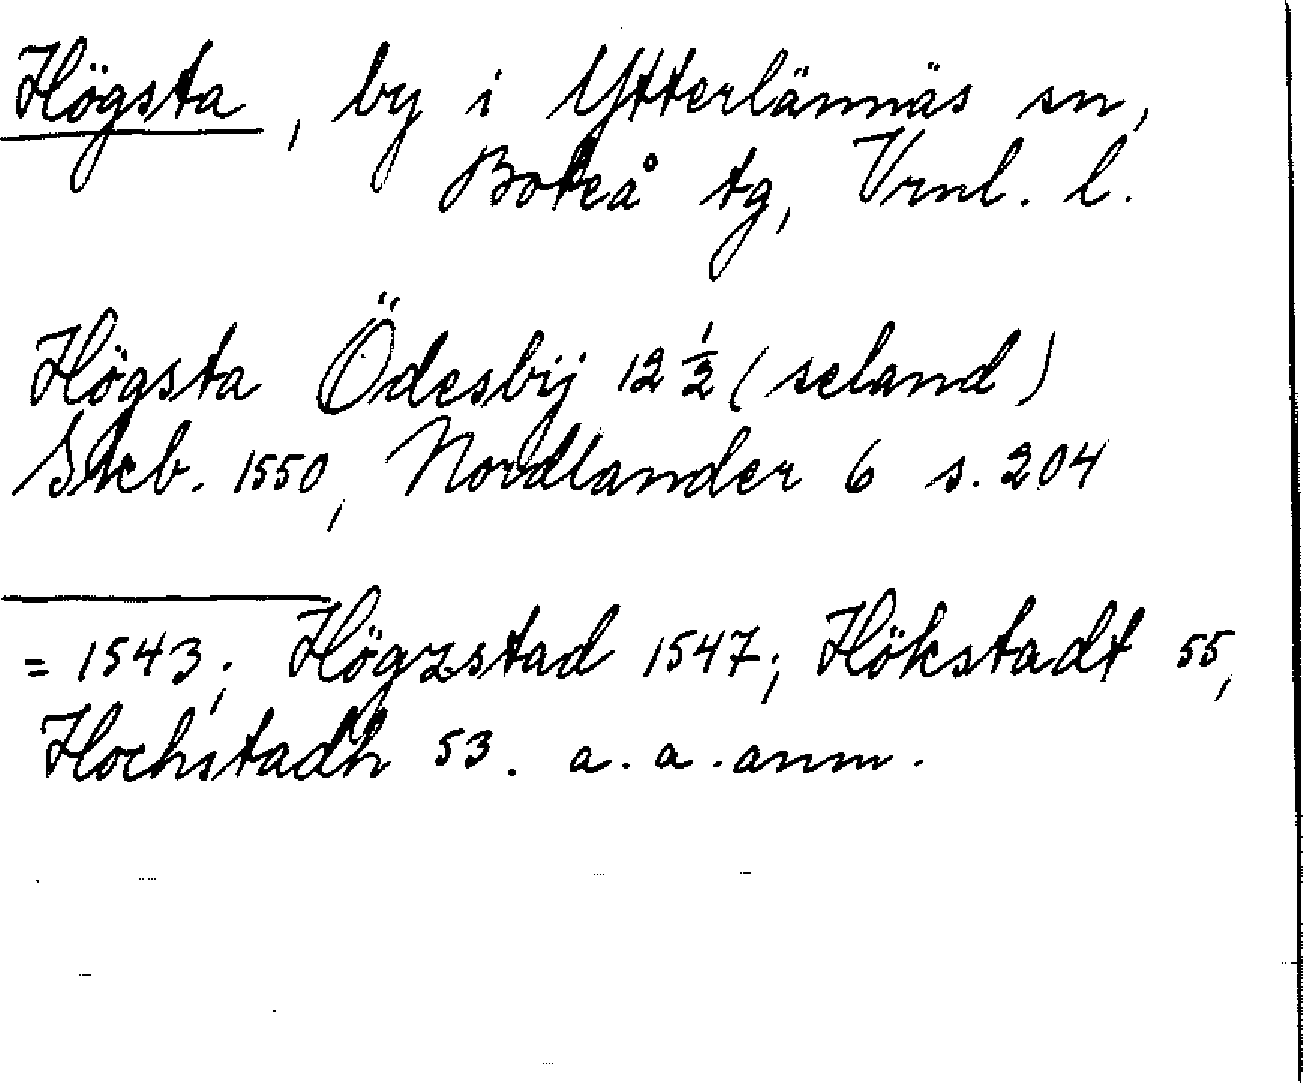 Högsta, by i Ytterlännäs sn,
Boteå tg, Vrnl. l.
Högsta Ödesbÿ 12 ½ (seland)
Skb. 1550, Nordlander 6 s. 204
= 1543; Högzstad 1547; Hökstadt 55,
Hochstadh 53. a. a. anm.